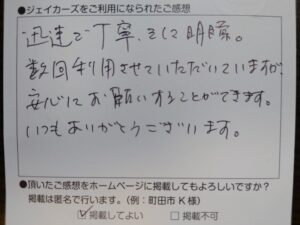 ●ジェイカーズをご利用になられたご感想
迅速で丁寧、そして明瞭。
数回利用させていただいていますが、
安心にお願いすることができます。
いつもありがとうございます。
●頂いたご感想をホームページに掲載してもよろしいですか？
掲載は匿名で行います。（例：町田市 K様）
☑掲載してよい □掲載不可